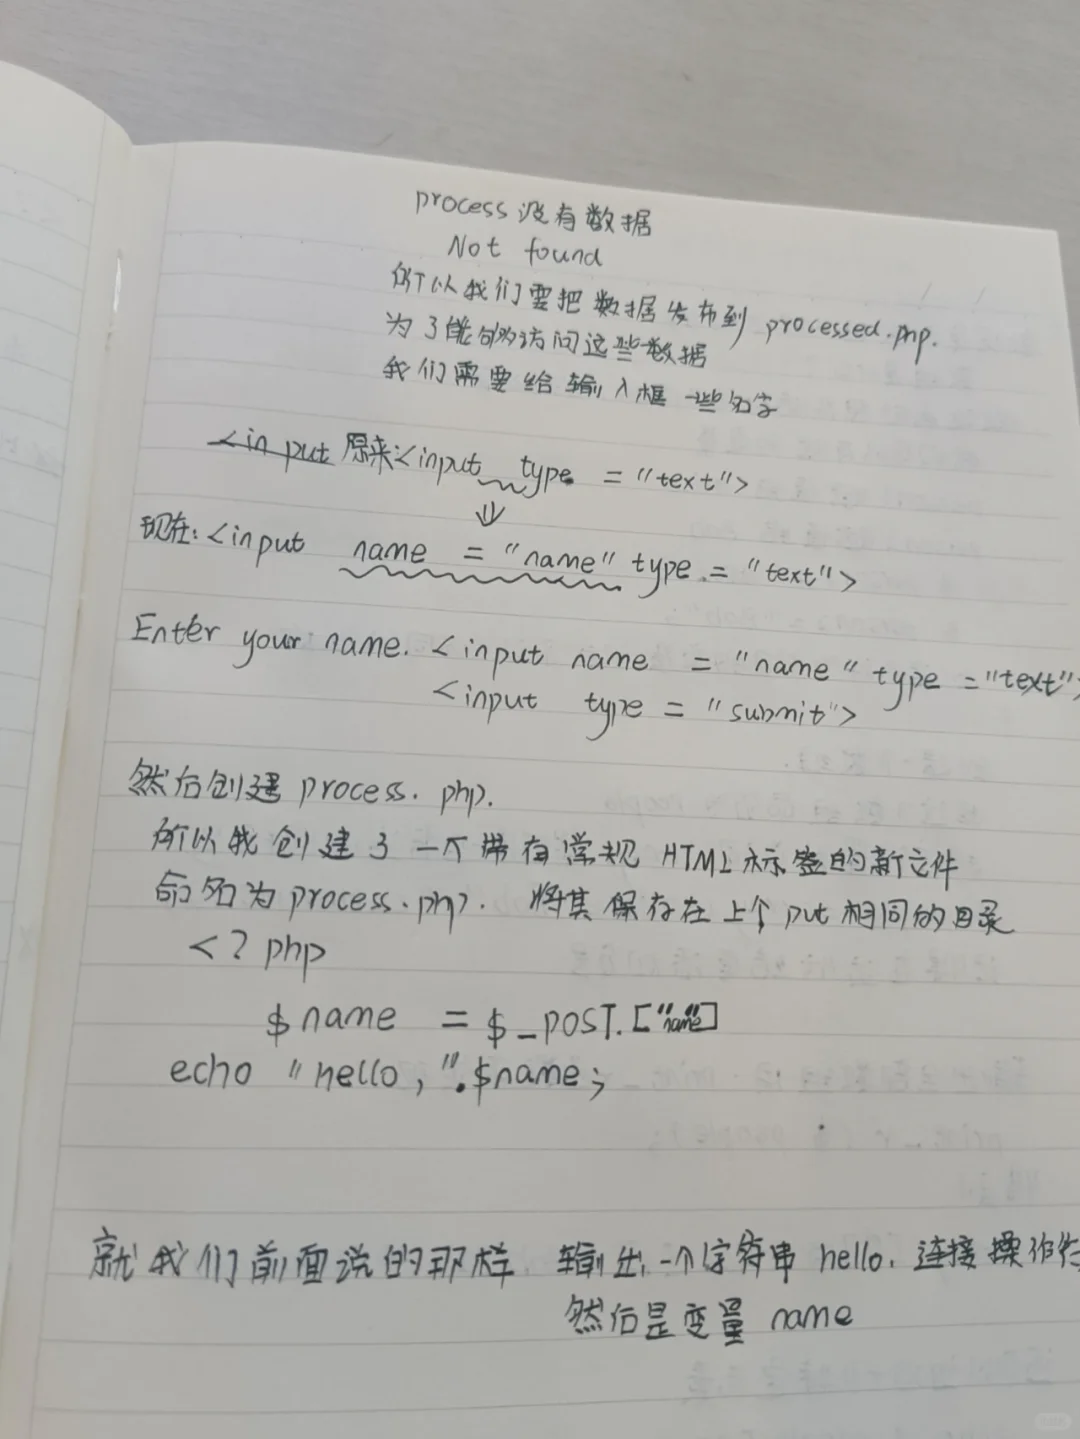 process 没有数据
Not found
所以我们要把数据发布到 processed.php.
为了能够访问这些数据
我们需要给输入框一些名字
<input 原来:<input type = "text">
⇓
现在:<input name = "name" type = "text">
Enter your name. <input name = "name" type = "text">
<input type = "submit">
然后创建 process. php.
所以我创建了一个带有常规 HTML 标签的新文件
命名为 process.php. 将其保存在上个 put 相同的目录
<? php
$ name = $ _POST. ["name"]
echo "hello, ".$name;
就我们前面说的那样 输出一个字符串 hello. 连接操作符
然后是变量 name